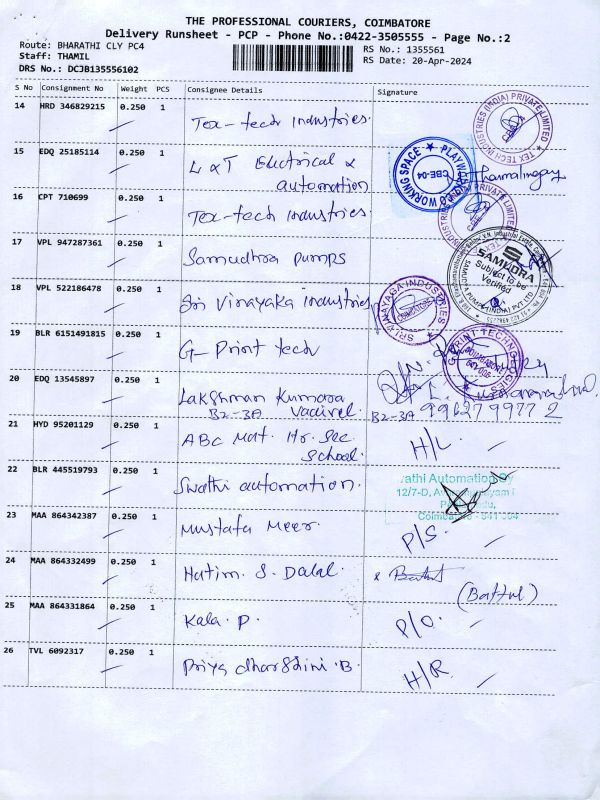 THE PROFESSIONAL COURIERS, COIMBATORE
Delivery Runsheet - PCP - Phone No.:0422-3505555 - Page No.:2
Route: BHARATHI CLY PC4
RS No.: 1355561
Staff: THAMIL
RS Date: 20-Apr-2024
DRS No.: DCJB135556102
S No Consignment No Weight PCS Consignee Details Signature
14 HRD 346829215 0.250 1 Tex-tech industries.
TEX TECH INDUSTRIES (INDIA) PRIVATE LIMITED
15 EDQ 25185114 0.250 1 L & T Electrical &
automation
CO WORKING SPACE
CBE-04
16 CPT 710699 0.250 1 Tex-tech industries.
17 VPL 947287361 0.250 1 Samudhra pumps
SAMUDRA
Subject to be
Verified
18 VPL 522186478 0.250 1 Sri Vinayaka industries
SRI VINAYAGA INDUSTRIES
19 BLR 6151491815 0.250 1 G-Print tech
G-PRINT TECHNOLOGIES
20 EDQ 13545897 0.250 1 Lakshman Kumara
B2-3A Vadivel.
B2-3A 9962799772
21 HYD 95201129 0.250 1 ABC Mat. Hr. Sec
School.
H/L.
22 BLR 445519793 0.250 1 Swathi automation.
12/7-D,
Coimbatore
23 MAA 864342387 0.250 1 Mustafa Meer.
P/S.
24 MAA 864332499 0.250 1 Hatim. S. Dalal.
(Battul)
25 MAA 864331864 0.250 1 Kala. P.
P/O.
26 TVL 6092317 0.250 1 Priya dharshini .B.
H/R.